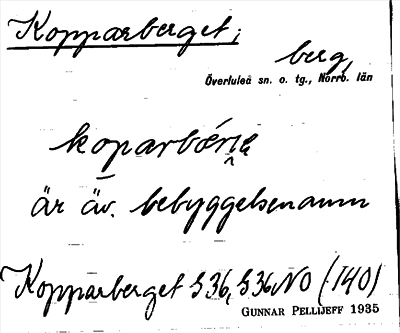 Kopparberget,
berg,
Överluleå sn. o. tg., Norrb. län
koparbærie
är äv. bebyggelsenamn
Kopparberget S 36, S 36 NO (140)
GUNNAR PELLIJEFF 1935